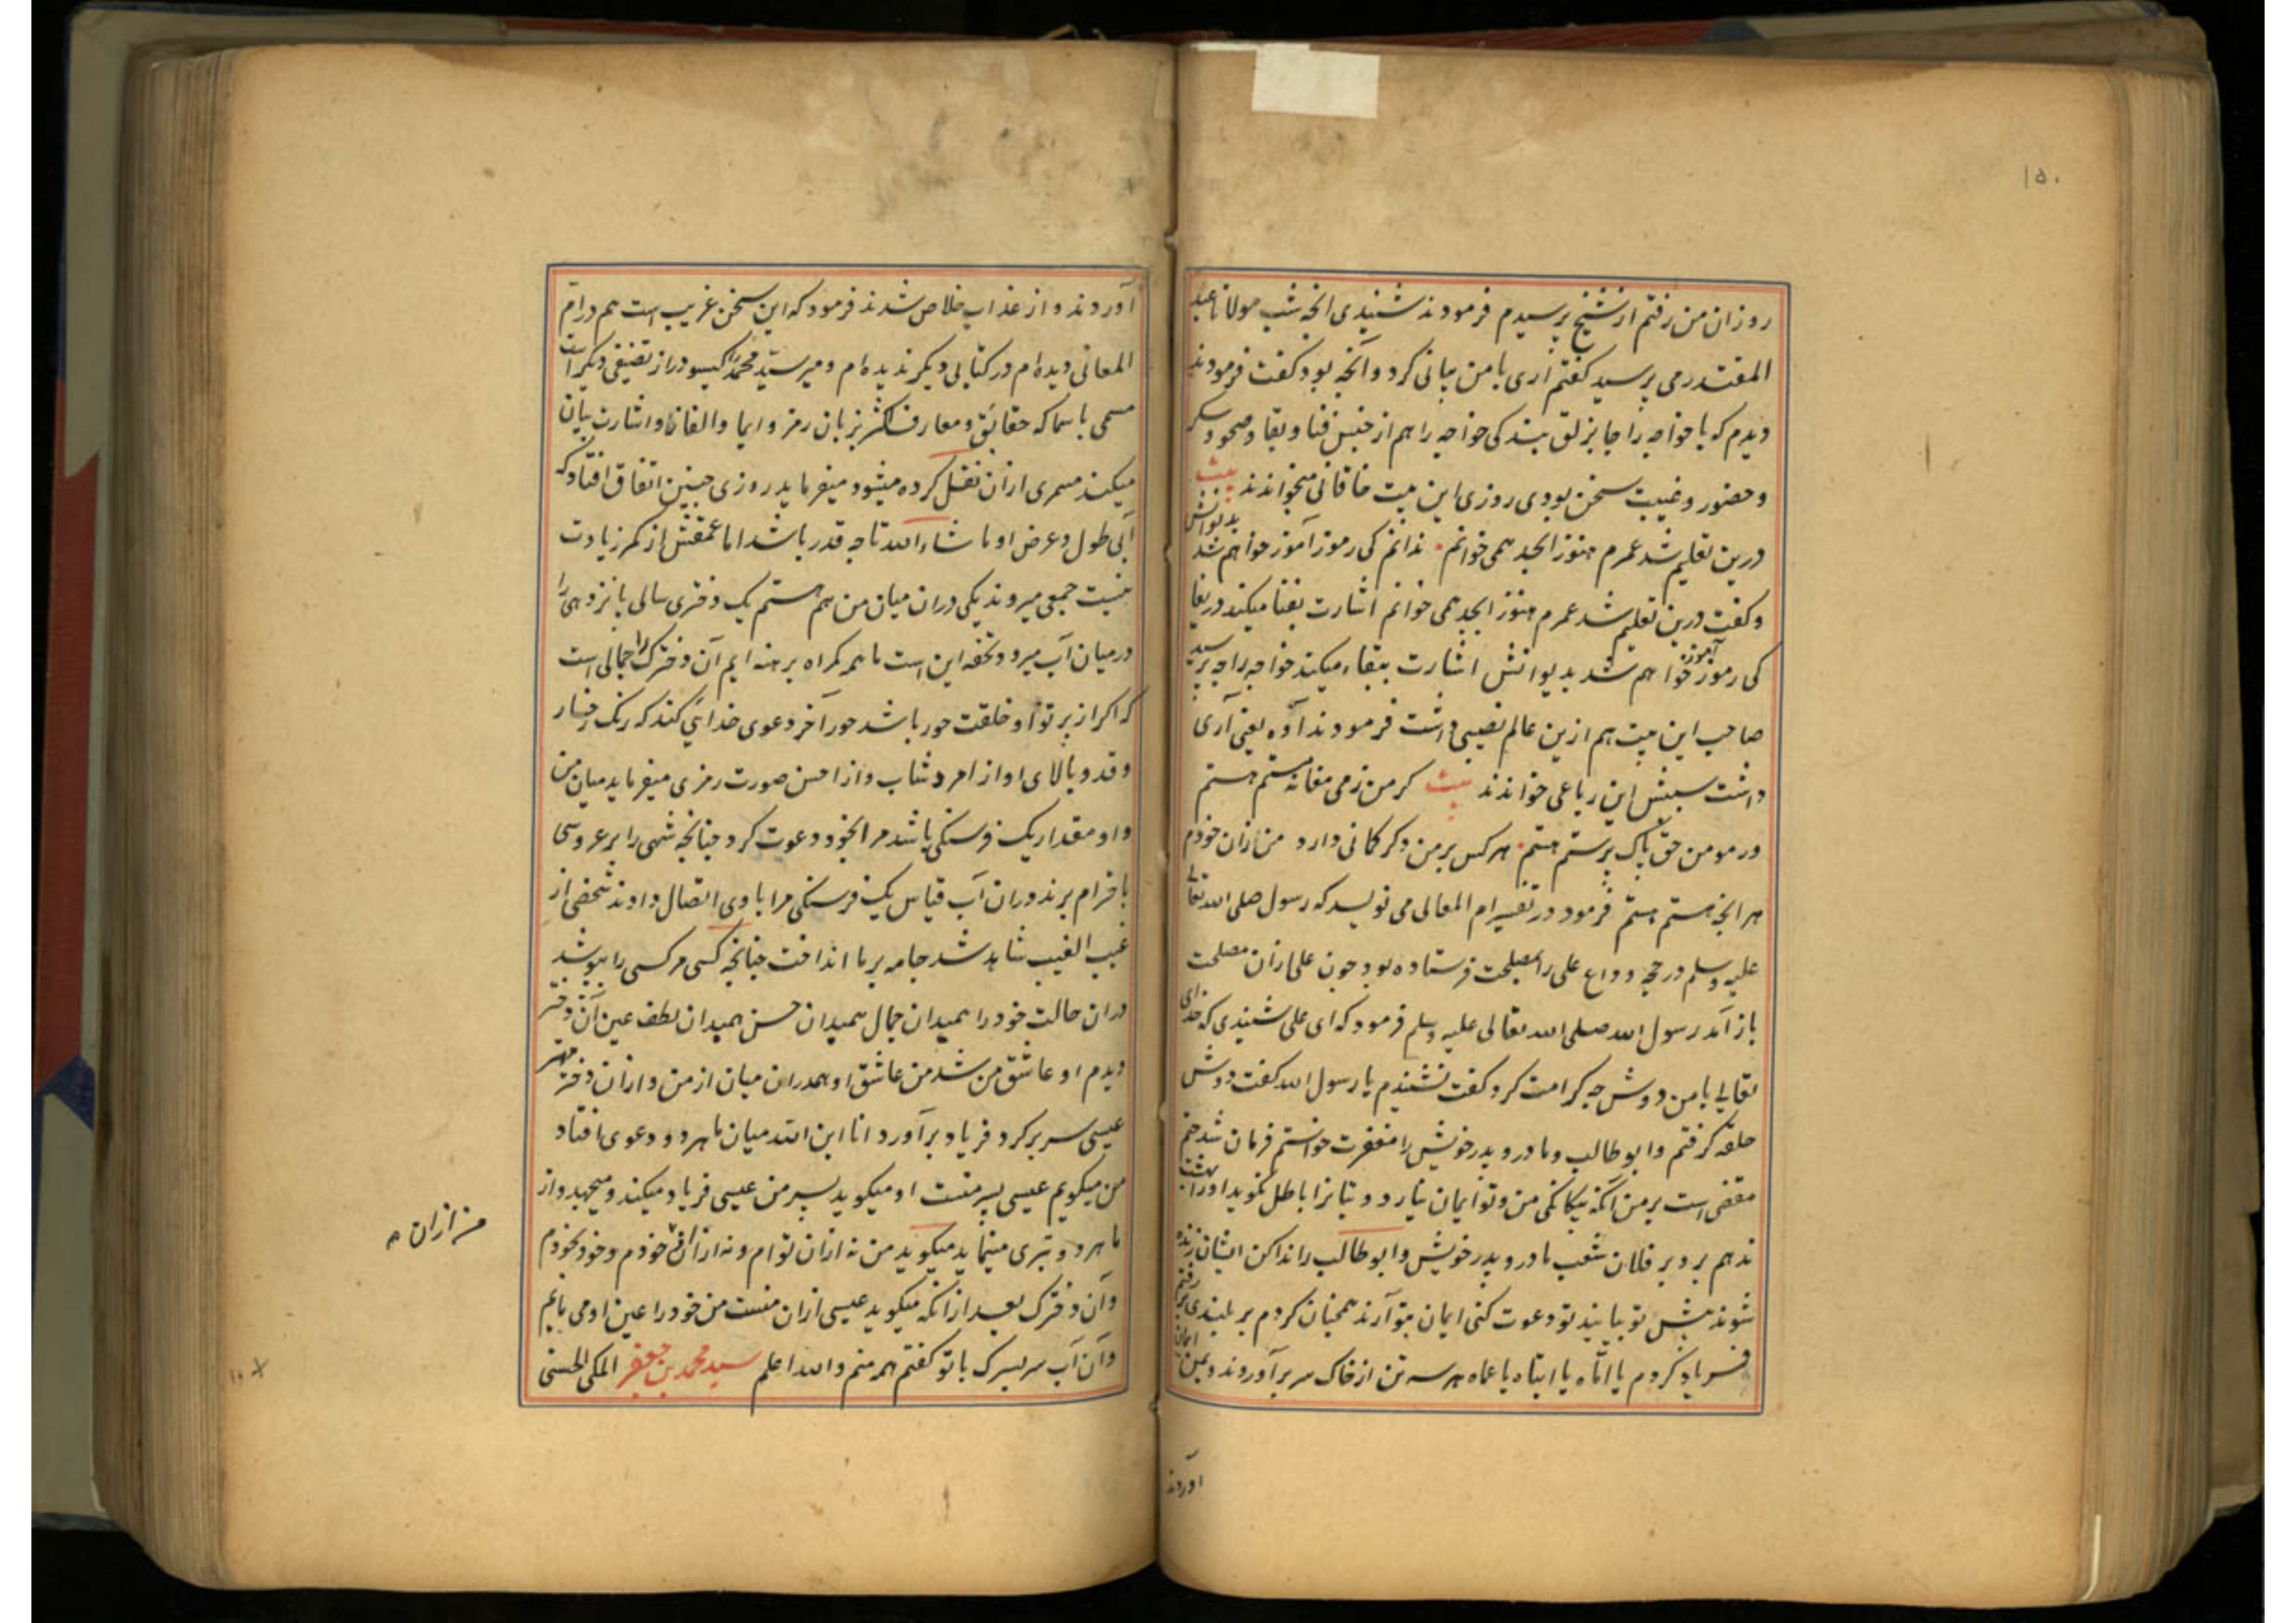 ۱۵۰
روز ان من رفتم از شیخ پرسیدم فرمودند شنیدی انچه شب مولانا عبد
المقتدر می پرسید کفتم آری با من بیانی کرد و آنچه بود کفت فرمودند
دیدم که با خواجه را جابزلق بند کی خواجه را هم از جنس فنا و بقا و صحو و سکر
و حضور و غیبت سخن بودی روزی این بیت خاقانی میخواندند بیت
درین تعلیم شد عمرم هنوز ابجد همی خوانم ندانم کی رموز آموز خواهم شد بدیوانش
و کفت درین تعلیم شد عمرم هنوز ابجد همی خوانم اشارت بفنا میکند دریغا
کی رموز آموز خواهم شد بدیوانش اشارت ببقاء میکند خواجه را چه پرسید
صاحب این بیت هم ازین عالم نصیبی داشت فرمودند آوه یعنی آری
داشت سپس این رباعی خواندند بیت کر من ز می مغانه مستم هستم
ور مومن حق پاک پرستم هستم هر کس بر من دکر کمانی دارد من زان خودم
هر انچه هستم هستم فرمود در تفسیر ام المعالی می نویسد که رسول صلی الله تعالی
علیه و سلم در حجه وداع علی را بمصلحت فرستاده بود چون علی ازان مصلحت
باز آمد رسول الله صلی الله تعالی علیه وسلم فرمود که ای علی شنیدی که خدای
تعالی با من دوش چه کرامت کرد کفت نشنیدم یا رسول الله کفت دوش
حلقه کرفتم و ابو طالب و مادر و پدر خویش را مغفرت خواستم فرمان شد حتم
مقضی است بر من آنکه بیکانکی من و تو ایمان نیارد و بتانرا باطل نکوید او را بهشت
ندهم برو بر فلان شعب مادر و پدر خویش و ابو طالب را ندا کن ایشان زنده
شوند پیش تو بیایند تو دعوت کنی ایمان بتو آرند همچنان کردم بر بلندی رفتم
فریاد کردم یا اماه یا ابتاه یا عماه هر سه تن از خاک سر بر آوردند و بمن ایمان
آوردند
آوردند و از عذاب خلاص شدند فرمود که این سخن غریب است هم در ام
المعانی دیده ام در کتابی دیکر ندیده ام و میر سید محمد کیسودراز را تصنیفی دیکر است
مسمی باسما که حقائق و معارف اکثر بزبان رمز و ایما و الغاز و اشارت بیان
میکند سمری ازان نقل کرده میشود میفرماید روزی چنین اتفاق افتاد که
آبی طول و عرض او ما شاء الله تا چه قدر باشد اما عمقش از کمر زیادت
نیست جمعی میروند یکی دران میان من هم هستم یک دختری سالی پانزدهی را
در میان آب میرود تحفه این است ما همه کمراه برهنه ایم آن دخترک را جمالی است
که اکر از پرتو او خلقت حور باشد حور آخر دعوی خدائی کند که رنک رخسار
و قد و بالای او از امرد شاب و از احسن صورت رمزی میفرماید میان من
و او مقدار یک فرسنکی باشد مرا بخود دعوت کرد چنانچه شهی را بر عروسی
با خرام برند دران آب قیاس یک فرسنکی مرا با وی اتصال دادند شخصی از
غیب الغیب شاهد شد جامه بر ما انداخت چنانچه کسی مر کسی را بپوشد
دران حالت خود را همیدان جمال همیدان حسن همیدان لطف عین آن دختر
دیدم او عاشق من شد من عاشق او همدران میان از من و ازان دختر مهتر
عیسی سر بر کرد فریاد بر آورد انا ابن الله میان ما هر دو دعوی افتاد
من میکویم عیسی پسر منست او میکوید پسر من عیسی فریاد میکند و میجهد و از
ما هر دو تبری مینماید میکوید من نه ازان توام و نه ازان خودم و خود بخودم
وآن دخترک بعد ازانکه میکوید عیسی ازان منست من خود را عین او می یابم
وآن آب سر بسرک با تو کفتم همه منم والله اعلم سید محمد بن جعفر المکی الحسنی
من ازان